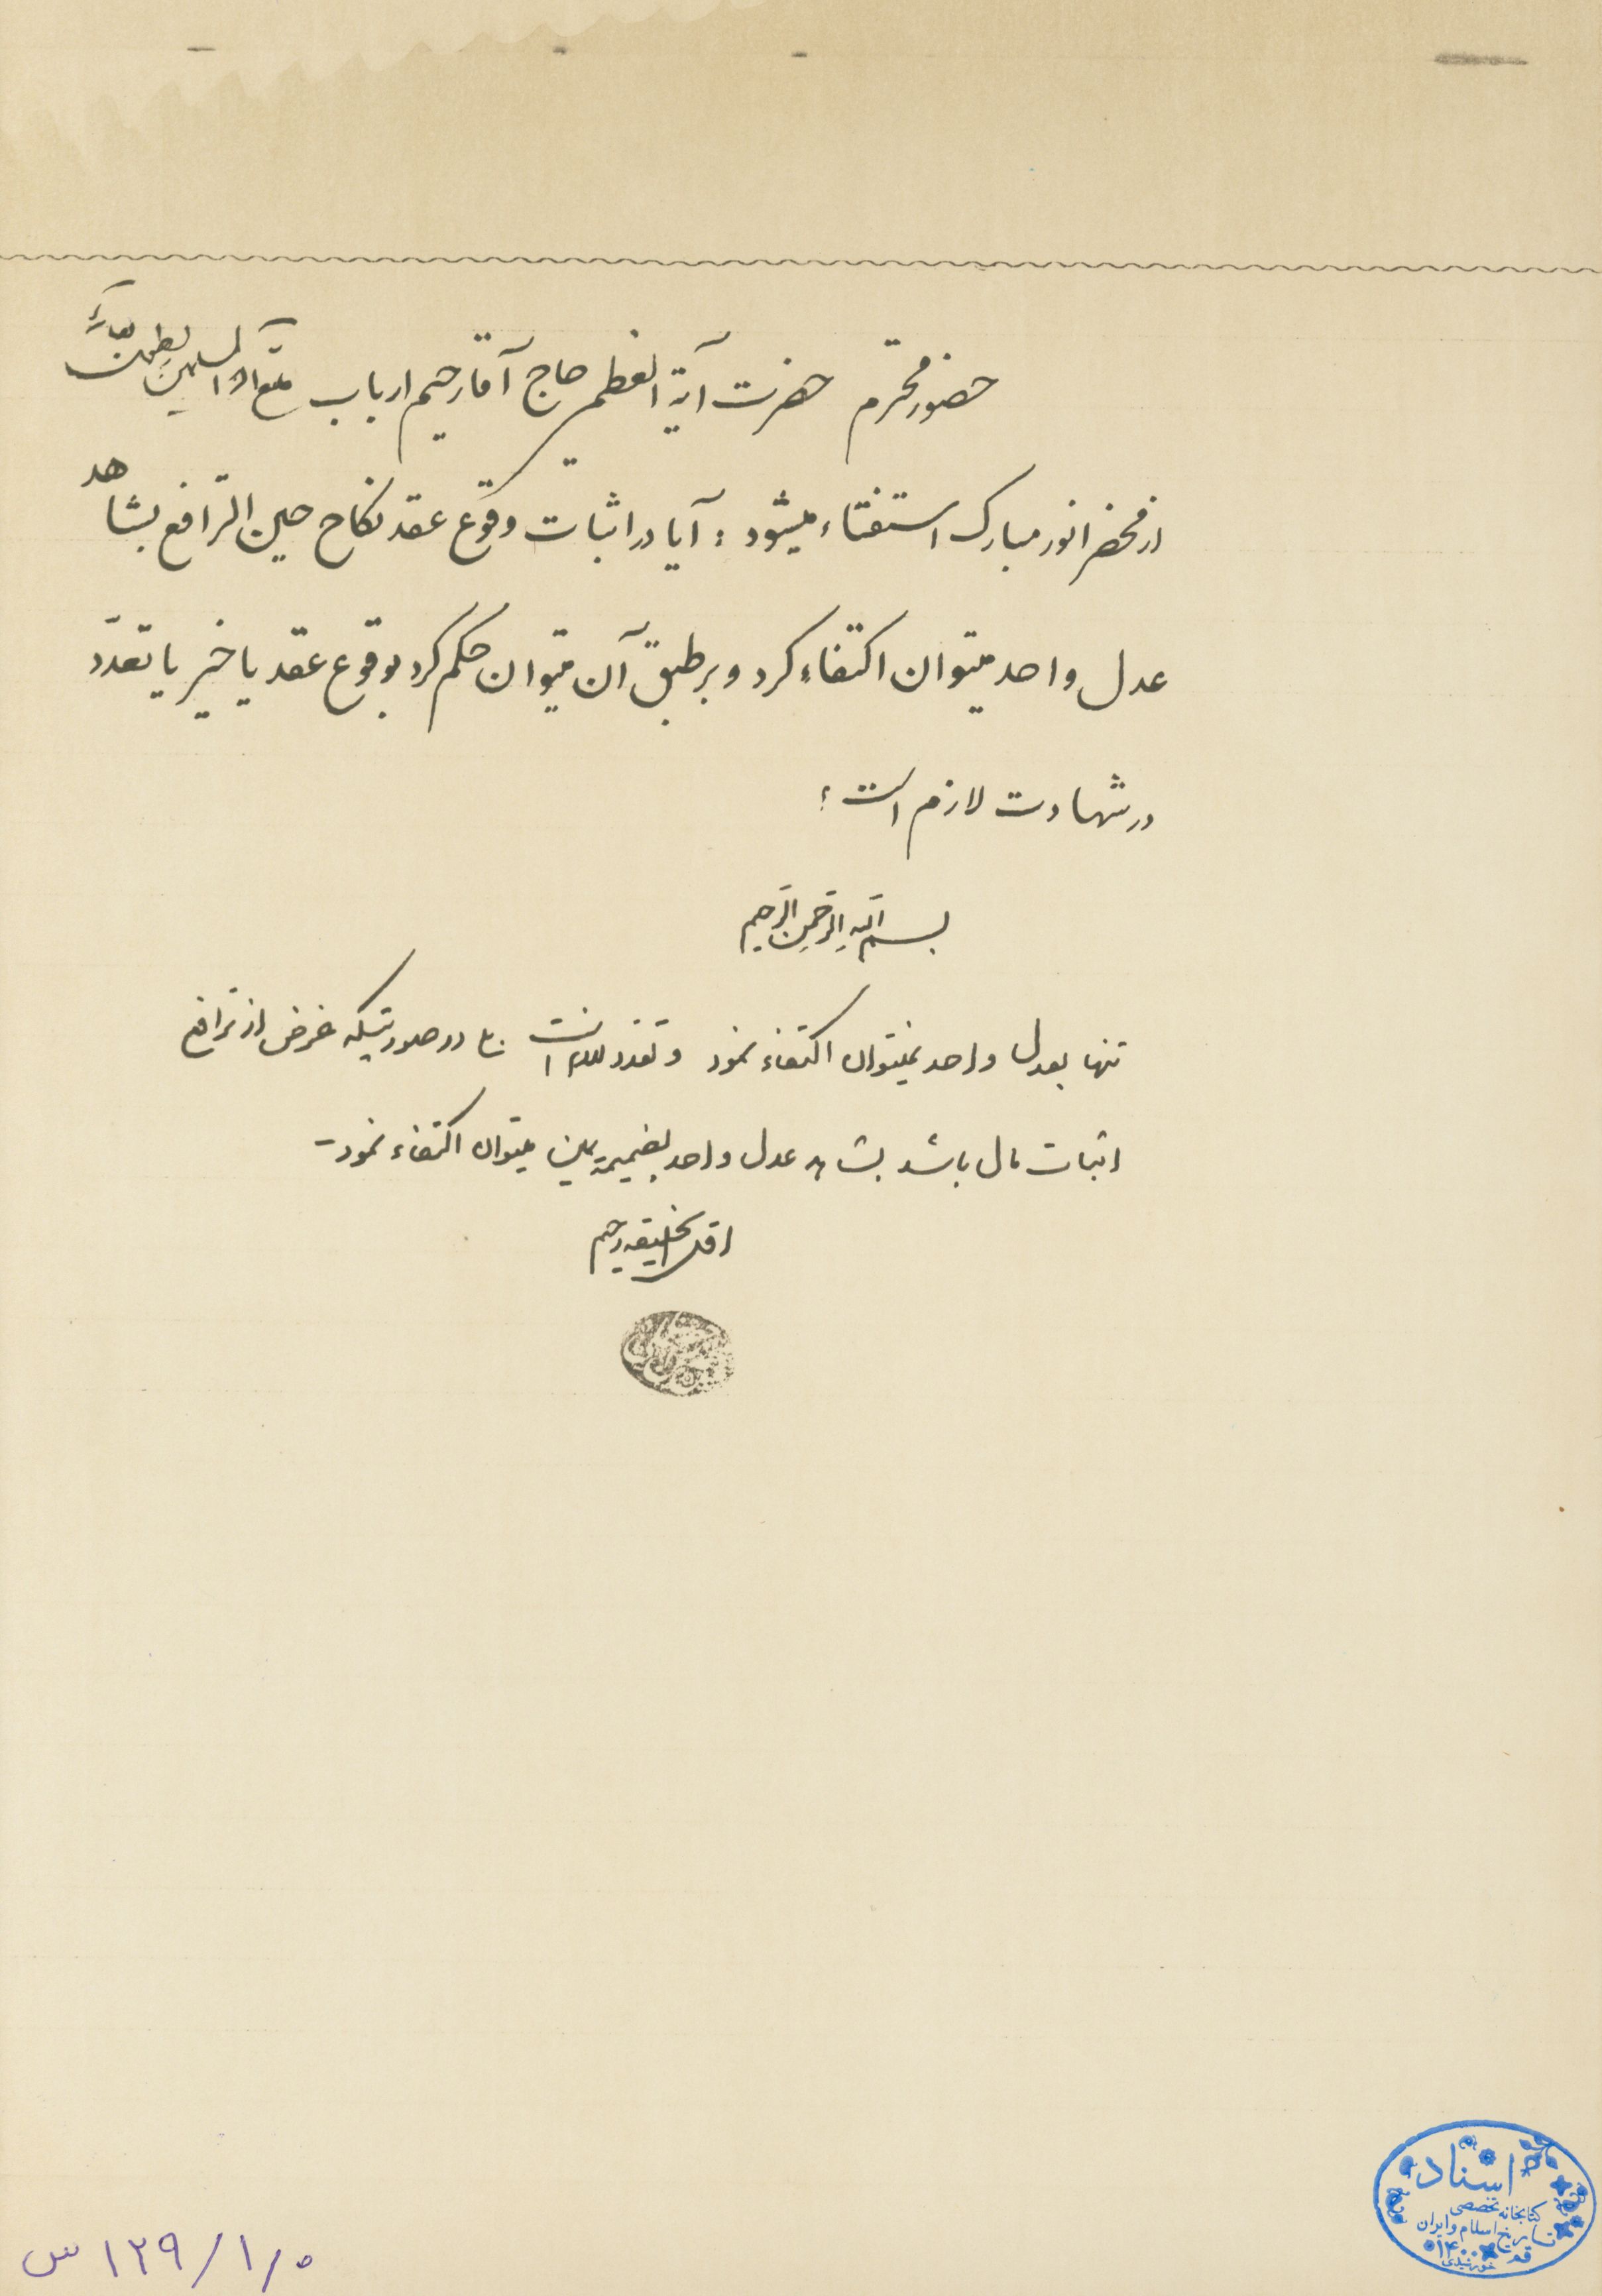 حضور محترم حضرت آیة العظمی حاج آقا رحیم ارباب متع الله المسلمین بطول بقائه
از محضر انور مبارک استفتاء میشود : آیا در اثبات وقوع عقد نکاح حین الترافع بشاهد
عدل واحد میتوان اکتفاء کرد و بر طبق آن میتوان حکم کرد بوقوع عقد یا خیر یا تعدّد
در شهادت لازم است ؟
بسم الله الرحمن الرحیم
تنها بعدل واحد نمیتوان اکتفاء نمود و تعدد لازم است بلی در صورتیکه غرض از ترافع
اثبات مال باشد بشاهد عدل واحد بضمیمه یمین میتوان اکتفاء نمود -
اقل الخلیقه رحیم
اسناد
کتابخانه تخصصی
تاریخ اسلام و ایران
قم
۱۲۹/۱/۰ س